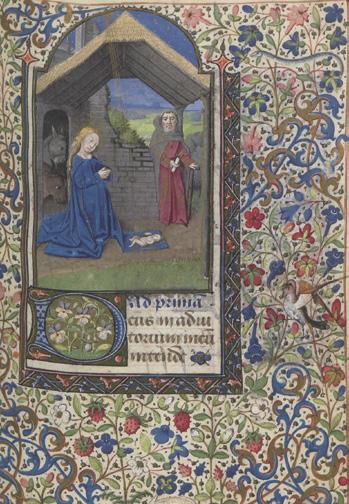 Ad prima
Deus in adiu
torium meu
intende